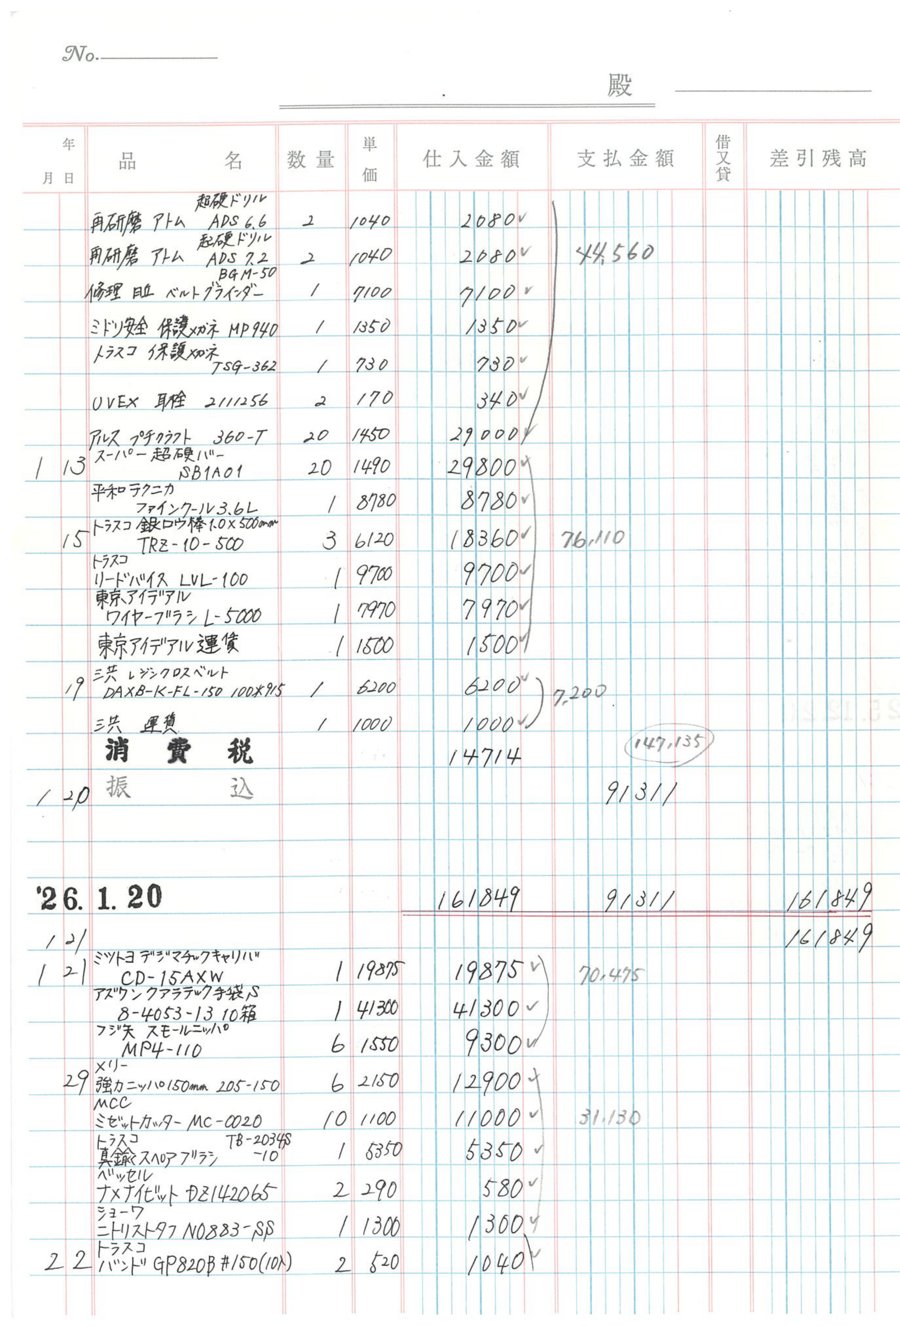 No.
殿
年
月 日
品 名
数 量
単価
仕 入 金 額
支 払 金 額
借又貸
差 引 残 高
超硬ドリル
再研磨 アトム ADS 6.6 2 1040 2080
超硬ドリル
再研磨 アトム ADS 7.2 2 1040 2080 44,560
BGM-50
修理 日立 ベルトグラインダー 1 7100 7100
ミドリ安全 保護メガネ MP940 1 1350 1350
トラスコ 保護メガネ
TSG-362 1 730 730
UVEX 耳栓 2111256 2 170 340
アルス プチクラフト 360-T 20 1450 29000
スーパー超硬バー
1 13 SB1A01 20 1490 29800
平和テクニカ
ファインクール3.6L 1 8780 8780
トラスコ 銀ロウ棒1.0×500mm
15 TRZ-10-500 3 6120 18360 76,110
トラスコ
リードバイス LVL-100 1 9700 9700
東京アイデアル
ワイヤーブラシL-5000 1 7970 7970
東京アイデアル運賃 1 1500 1500
三共 レジンクロスベルト
19 DAXB-K-FL-150 100×915 1 6200 6200 7,200
三共 運賃 1 1000 1000
消費税 14714 147,135
1 20 振込 91311
'26. 1. 20 161849 91311 161849
1 21 161849
ミツトヨ デジマチックキャリパ
1 21 CD-15AXW 1 19875 19875 70,475
アズワン クアラテック手袋S
8-4053-13 10箱 1 41300 41300
フジ矢 スモールニッパ
MP4-110 6 1550 9300
メリー
29 強力ニッパ150mm 205-150 6 2150 12900
MCC
ミゼットカッター MC-0020 10 1100 11000 31,130
トラスコ TB-2034S
真鍮スペアブラシ -10 1 5350 5350
ベッセル
ナメナイビット DZ142065 2 290 580
ショーワ
ニトリストタフ NO883-SS 1 1300 1300
トラスコ
2 2 バンド GP820B #150(10入) 2 520 1040